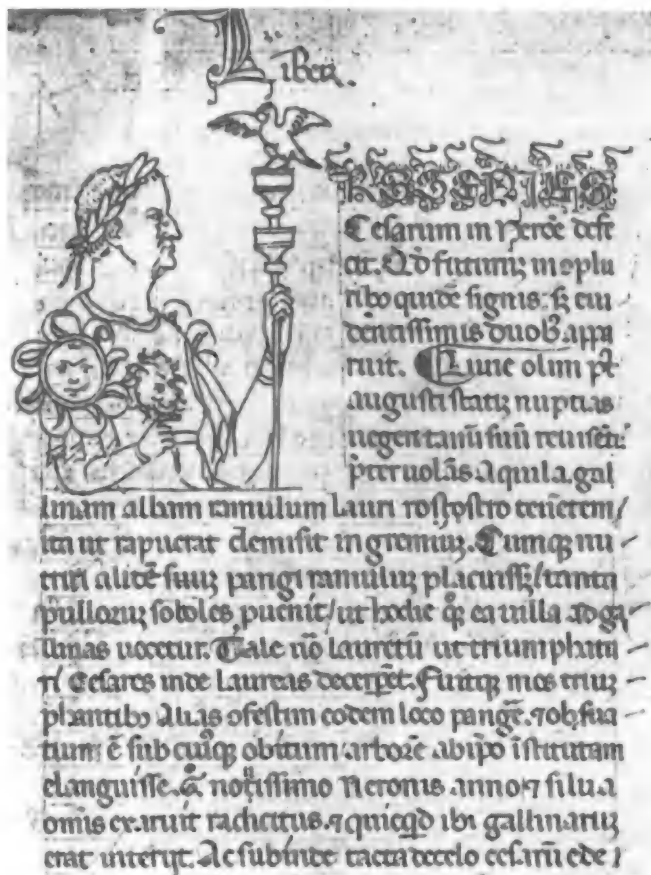 iber
ROGENIES
Cesarum in Nerōe defe
cit. Qd̄ futurūꝫ ɔplu
ribꝰ quidē signis: sꝫ eui
dentissimis duobꝰ appa
ruit. Liuie olim pꝰt
augusti statiꝫ nuptias
uegentanū suū reuisēti
p̄teruolās Aquila gal
linam albam ramulum lauri rostro tenentem/
ita ut rapuerat demisit in gremiuꝫ. Cumqꝫ nu
triri alitē suuꝫ pangi ramuluꝫ placuissꝫ/tanta
pulloruꝫ soboles puenit/ut hodie qꝫ ea uilla ad gal
linas uocetur. Tale uō lauretū ut triumphatu
ri Cesares inde Laureas decerpēt. Fuitqꝫ mos triuꝫ
phantibꝰ Alias ɔfestim eodem loco pangē. ⁊ obsua
tum ē sub cuiꝰqꝫ obitum/arborē abipo īstitutam
elanguisse. nouissimo Neronis anno ⁊ silua
omis exaruit radicitus. ⁊ quicqd ibi gallinaruꝫ
erat interijt. Ac subinde tacta decelo cesarū ede